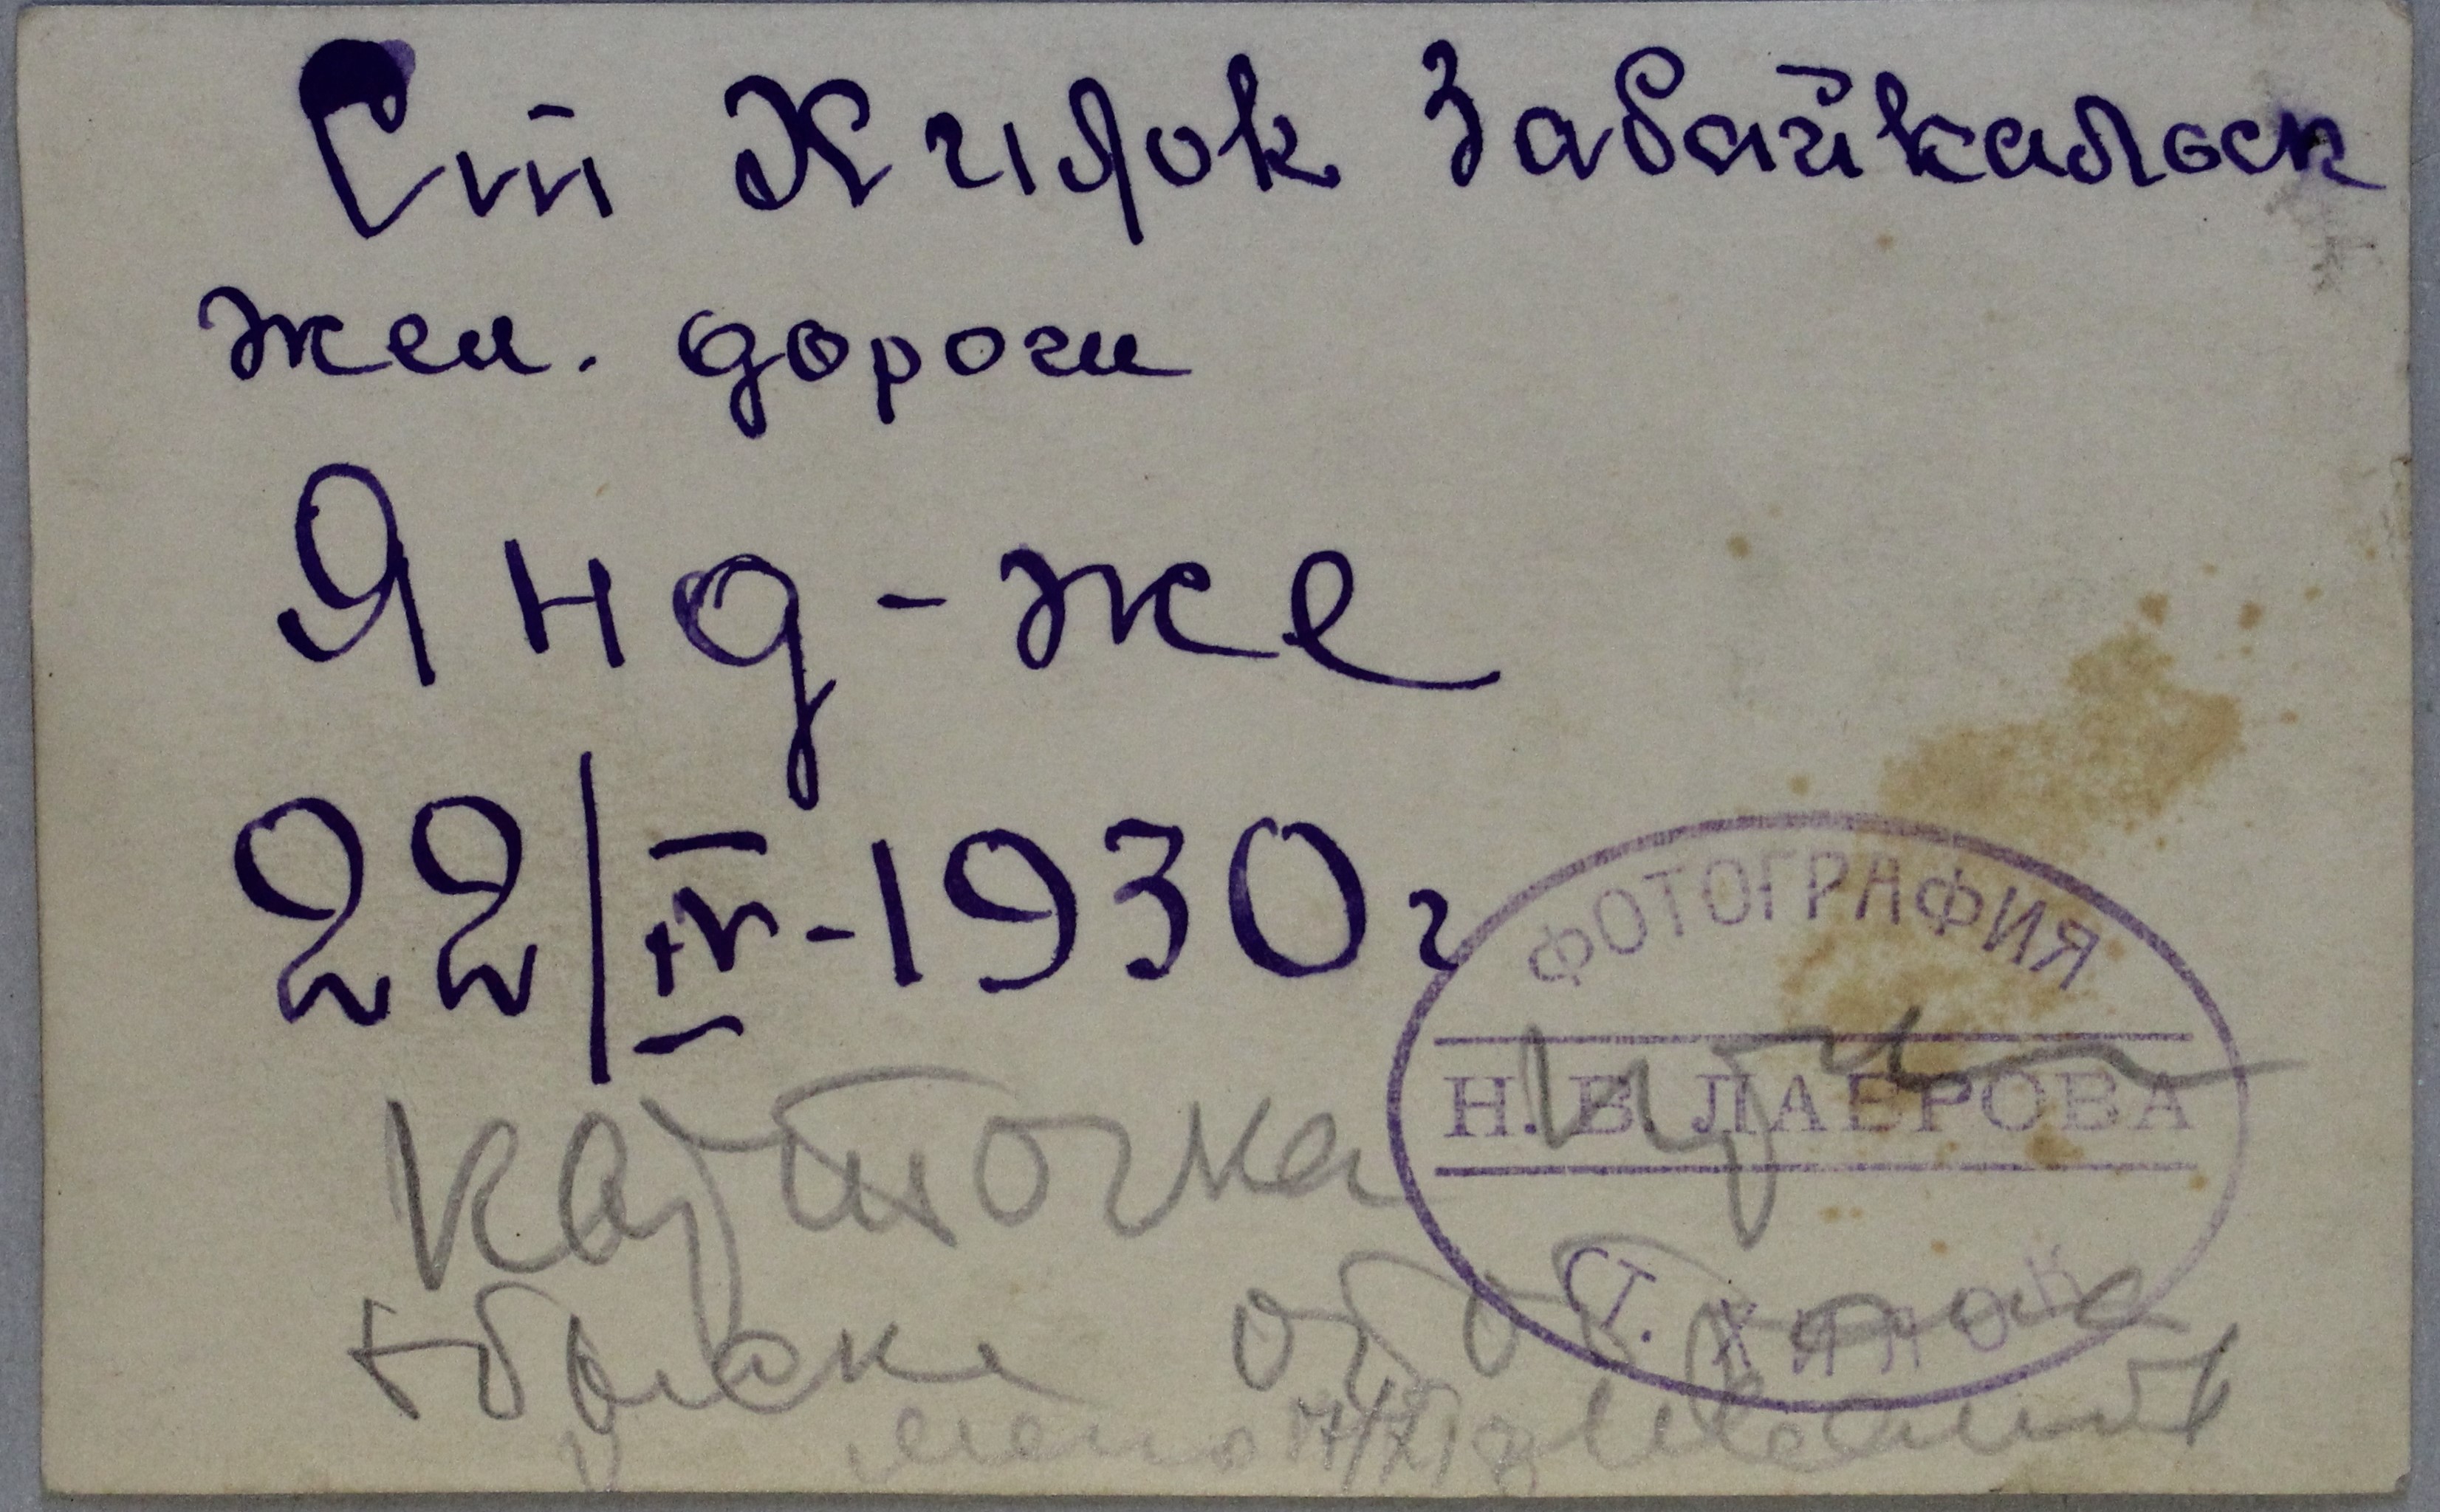 Ст Хилок Забайкальск
жел. дороги
Янд-же
22/IV-1930 г
ФОТОГРАФИЯ
Н. В. ЛАВРОВА
СТ. ХИЛОК
Карточка при
обыске отобрана